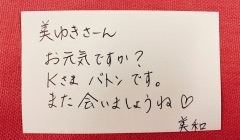 美ゆきさーん
お元気ですか?
Kさま バトンです。
また 会いましょうね♡
美和